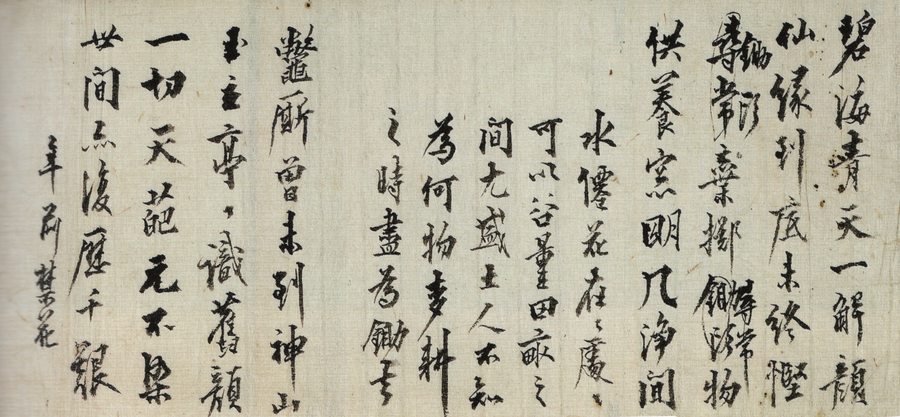 碧海青天一解顔
仙緣到底未終慳
鋤頭
尋常棄擲鋤頭物
尋常
供養窓明几淨間
水僊花在在處處
可以谷量田畝之
間尤盛土人不知
為何物麥耕
之時盡為鋤去
鼈廝曾未到神山
玉立亭亭識舊顔
一切天葩元不染
世間亦復歷千艱
年前禁花